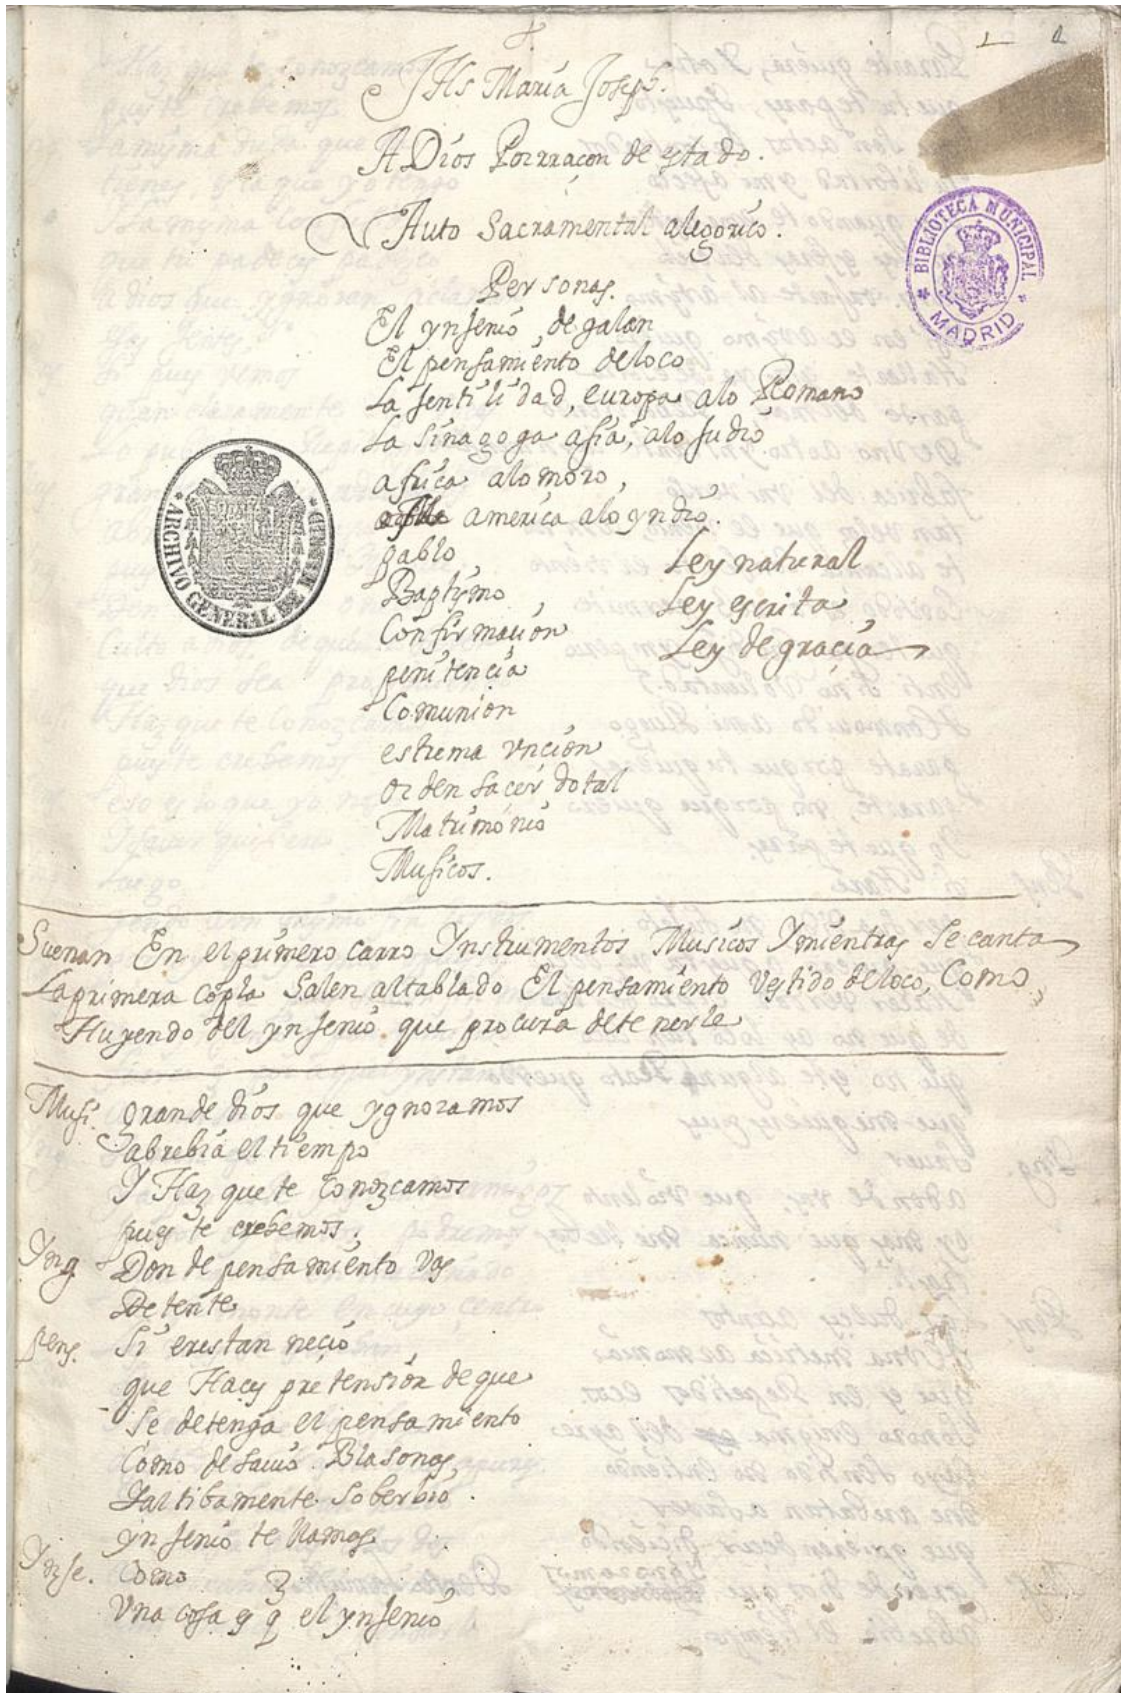 1 1
JHs Maria Joseph.
A Dios Porrraçon de estado.
Auto Sacramental alegorico.
Personas.
El ynjenio, de galan
El pensamiento de loco
La jentilidad, europa alo Romano
La sinagoga asia, alo judio
africa alo moro,
america alo yndio.
pablo
Baptismo
Confirmaçion
penitencia
Comunion
estrema vncion
orden sacerdotal
Matrimonio
Musicos.
Ley natural
Ley escrita
Ley de gracia
BIBLIOTECA MUNICIPAL
MADRID
ARCHIVO GENERAL DE MADRID
Suenan En el primero carro Ynstrumentos Musicos Y mientras se canta
La primera copla Salen al tablado El pensamiento Vestido de loco, Como
Huyendo del ynjenio que procura detenerle
Musi. grande dios que ygnoramos
abrebia el tiempo
Y Haz que te conozcamos
pues te crebemos.
Yng Donde pensamiento Vas
Detente
pens. Si eres tan necio
que Haces pretension de que
se detenga el pensamiento
Como de sauio Blasonas
Y altibamente soberbio
ynjenio te llamas
Ynje. Como
Vna cosa es q el ynjenio